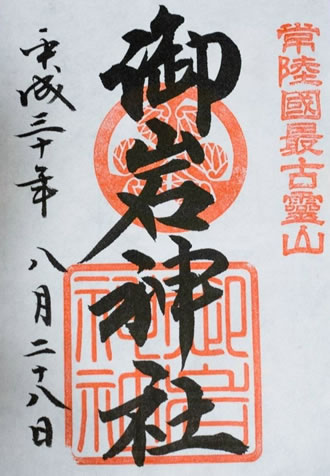 常陸國最古霊山
御岩神社
御岩神社
平成三十年 八月二十八日